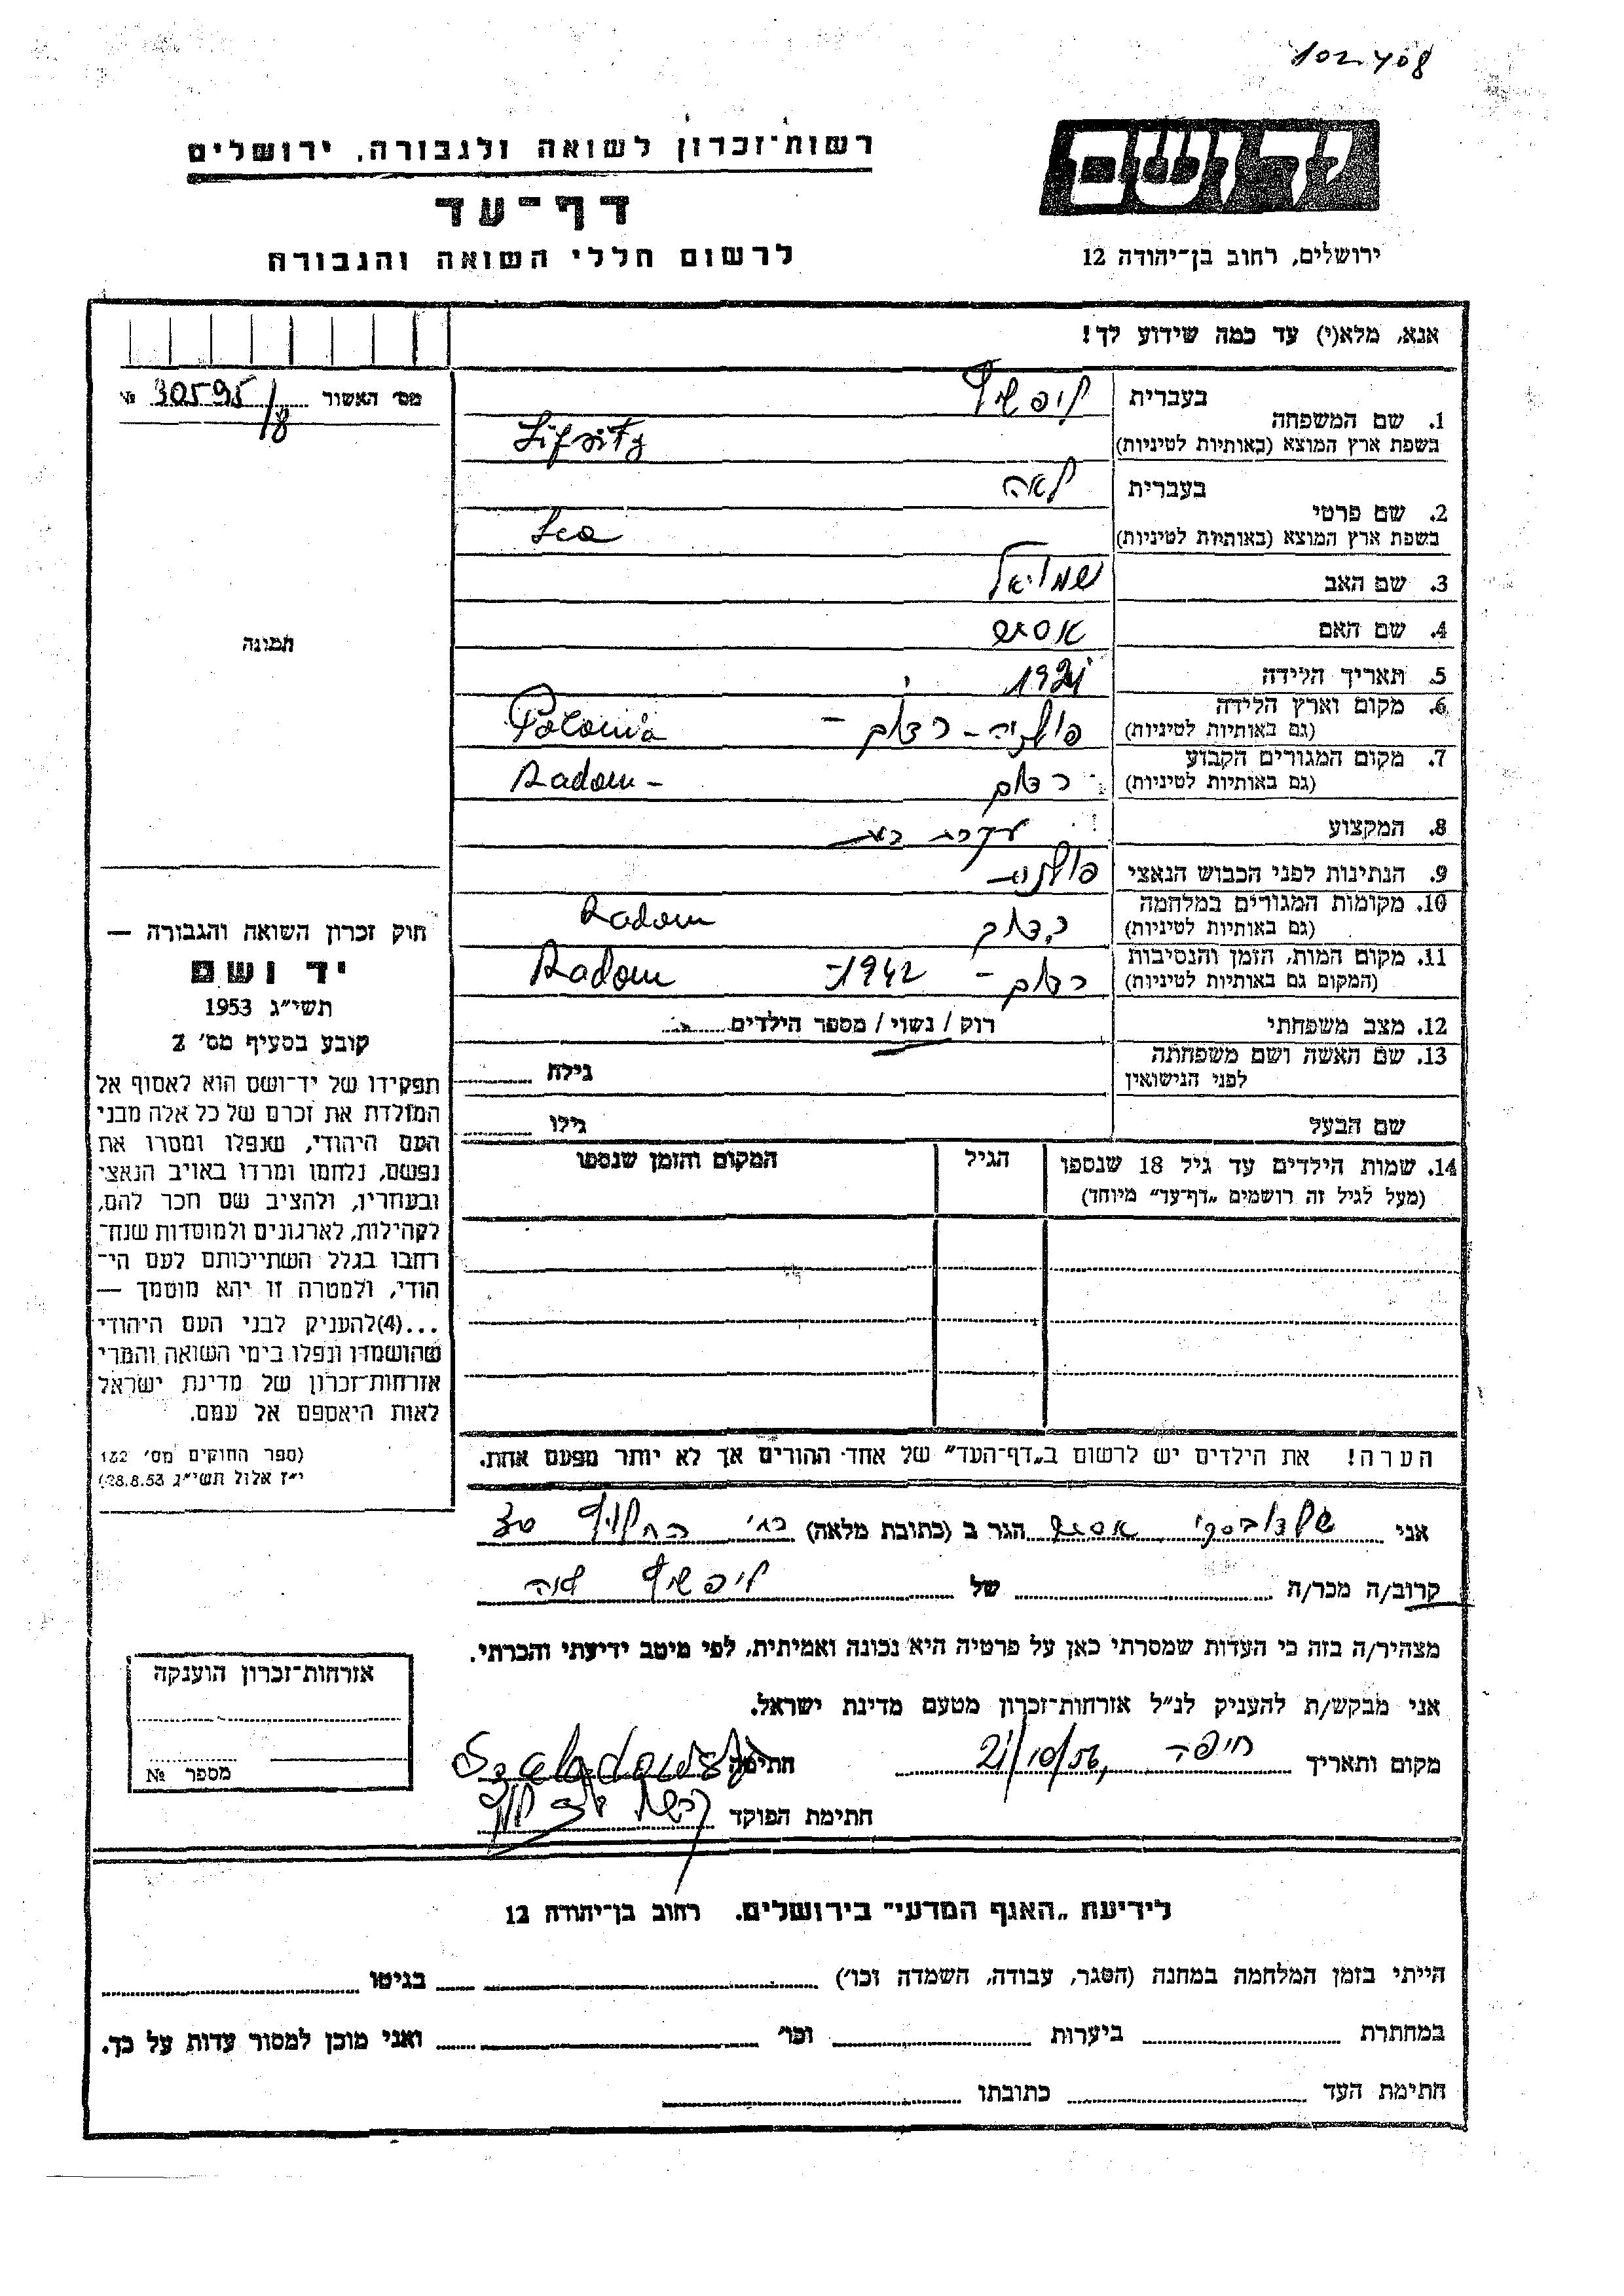 102408
רשות־זכרון לשואה ולגבורה, ירושלים
דף־עד
לרשום חללי השואה והגבורה
יד ושם
ירושלים, רחוב בן־יהודה 12
אנא, מלא(י) עד כמה שידוע לך!
מס׳ האשור 30595/8 №
תמונה
1. שם המשפחה
בעברית ליפשיץ
בשפת ארץ המוצא (באותיות לטיניות) Lifsitz
2. שם פרטי
בעברית לאה
בשפת ארץ המוצא (באותיות לטיניות) Lea
3. שם האב שמואל
4. שם האם
5. תאריך הלידה
6. מקום וארץ הלידה
(גם באותיות לטיניות) פולניה - רדום - Polonia
7. מקום המגורים הקבוע
(גם באותיות לטיניות) רדום Radom -
8. המקצוע עקרת בית
9. הנתינות לפני הכבוש הנאצי פולנית
10. מקומות המגורים במלחמה
(גם באותיות לטיניות) רדום Radom
11. מקום המות, הזמן והנסיבות
(המקום גם באותיות לטיניות) רדום - 1942 - Radom
12. מצב משפחתי רוק / נשוי / מספר הילדים
13. שם האשה ושם משפחתה
לפני הנישואין גילה
שם הבעל גילו
14. שמות הילדים עד גיל 18 שנספו הגיל המקום והזמן שנספו
(מעל לגיל זה רושמים „דף־עד״ מיוחד)
הערה! את הילדים יש לרשום ב„דף־העד״ של אחד ההורים אך לא יותר מפעם אחת.
חוק זכרון השואה והגבורה —
יד ושם
תשי״ג 1953
קובע בסעיף מס׳ 2
תפקידו של יד־ושם הוא לאסוף אל
המולדת את זכרם של כל אלה מבני
העם היהודי, שנפלו ומסרו את
נפשם, נלחמו ומרדו באויב הנאצי
ובעוזריו, ולהציב שם וזכר להם,
לקהילות, לארגונים ולמוסדות שנח־
רבו בגלל השתייכותם לעם הי־
הודי, ולמטרה זו יהא מוסמך —
...(4)להעניק לבני העם היהודי
שהושמדו ונפלו בימי השואה והמרי
אזרחות־זכרון של מדינת ישראל
לאות היאספם אל עמם.
(ספר החוקים מס׳ 132
י״ז אלול תשי״ג 28.8.53)
אני הגר ב (כתובת מלאה) רח׳ החלוץ
קרוב/ה מכר/ה של ליפשיץ
מצהיר/ה בזה כי העדות שמסרתי כאן על פרטיה היא נכונה ואמיתית, לפי מיטב ידיעתי והכרתי.
אני מבקש/ת להעניק לנ״ל אזרחות־זכרון מטעם מדינת ישראל.
מקום ותאריך חיפה, 21/10/56 חתימה
חתימת הפוקד
אזרחות־זכרון הוענקה
מספר №
לידיעת „האגף המדעי״ בירושלים, רחוב בן־יהודה 12
הייתי בזמן המלחמה במחנה (הסגר, עבודה, השמדה וכו׳) בגיטו
במחתרת ביערות וכו׳ ואני מוכן למסור עדות על כך.
חתימת העד כתובתו